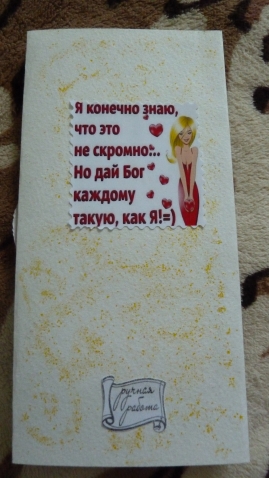 Я конечно знаю,
что это
не скромно...
Но дай Бог
каждому
такую, как Я!=)
ручная
работа